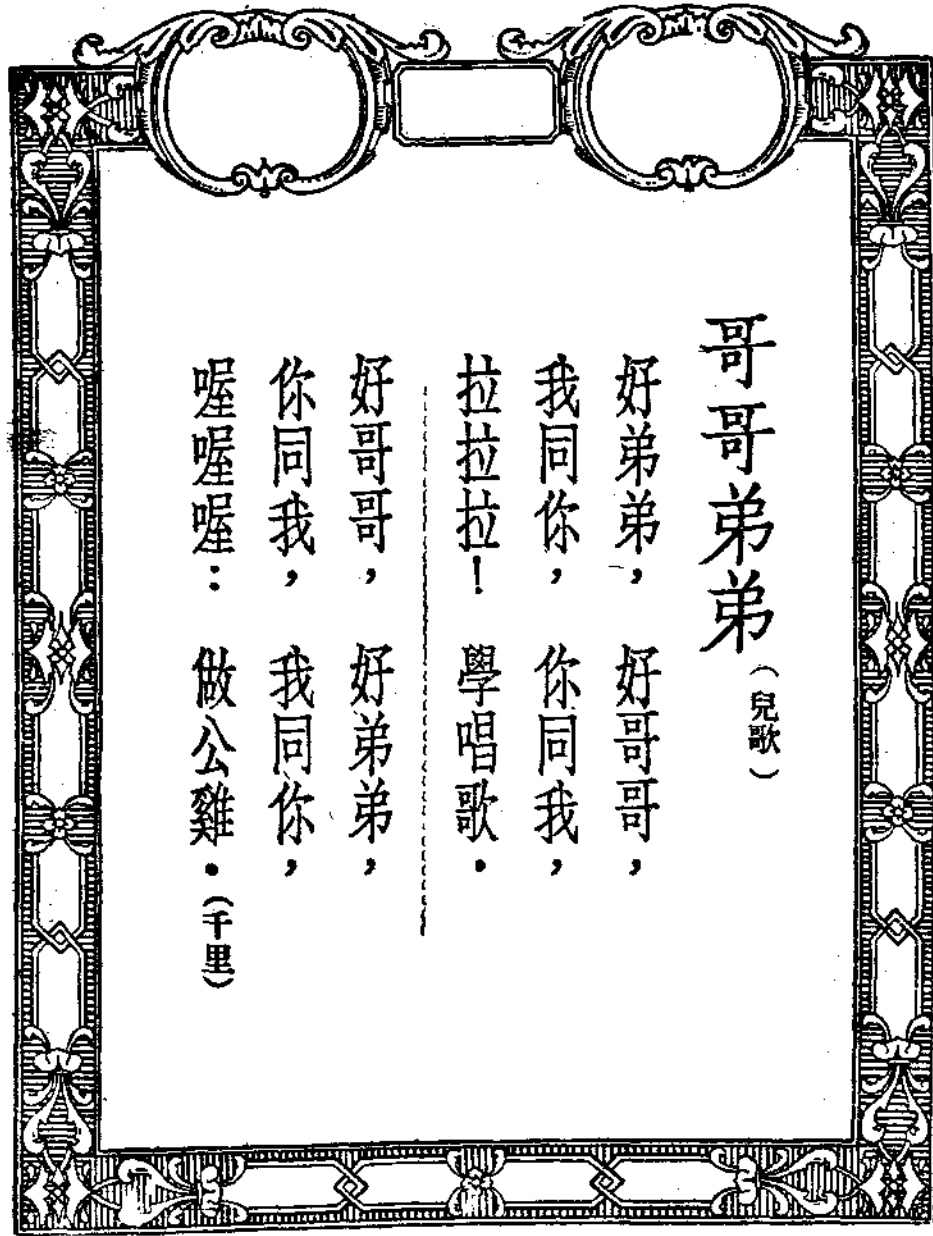 哥哥弟弟（兒歌）
好弟弟，好哥哥，
我同你，你同我，
拉拉拉！學唱歌．
好哥哥，好弟弟，
你同我，我同你，
喔喔喔：做公雞．（千里）